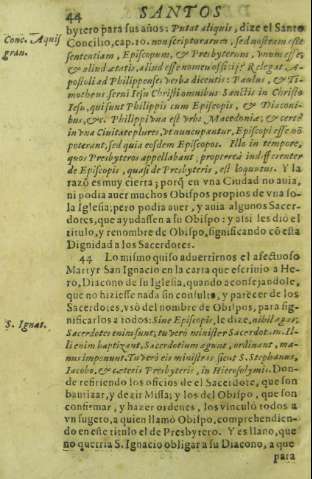 44 SANTOS
bytero para sus años: Putat aliquis, dize el Santo
Conc. Aquis
gran.
Concilio, cap. 10. non scripturarum, sed nostram esse
sententiam, Episcopum, & Presbyterum, vnum esse,
& aliud ætatis, aliud esse nomen officij? Relegat A-
postoli ad Philippenses verba dicentis: Paulus, & Ti-
motheus serui Iesu Christi omnibus Sanctis in Christo
Iesu, qui sunt Philippis cum Episcopis, & Diaconi-
bus, &c. Philippi vna est vrbs Macedoniæ; & certè
in vna Ciuitate plures, vt nuncupantur, Episcopi esse nō
poterant, sed quia eosdem Episcopos. Illo in tempore,
quos Presbyteros appellabant, proptereà indifferenter
de Episcopis, quasi de Presbyteris, est loquutus. Y la
razō es muy cierta; porq̃ en vna Ciudad no auia,
ni podia auer muchos Obispos propios de vna so-
la Iglesia; pero podia auer, y auia algunos Sacer-
dotes, que ayudassen a su Obispo: y assi les diò el
titulo, y renombre de Obispo, significando cō esta
Dignidad a los Sacerdotes.
44 Lo mismo quiso aduertirnos el afectuoso
Martyr San Ignacio en la carta que escriuio a He-
ro, Diacono de su Iglesia, quando aconsejandole,
que no hiziesse nada sin consulta, y parecer de los
Sacerdotes, vsò del nombre de Obispos, para sig-
S. Ignat.
nificarlos a todos: Sine Episcopis, le dize, nihil agas,
Sacerdotes enim sunt; tu verò minister Sacerdotum. Il-
li enim baptizant, Sacerdotium agunt, ordinant, ma-
nus imponunt. Tu verò eis ministras sicut S. Stephanus,
Iacobo, & cæteris Presbyteris, in Hierosolymis. Don-
de refiriendo los oficios de el Sacerdote, que son
bautizar, y dezir Missa; y los del Obispo, que son
confirmar, y hazer ordenes, los vinculò todos a
vn sugeto, a quien llamò Obispo, comprehendien-
do en este titulo el de Presbytero. Y es llano, que
no querria S. Ignacio obligar a su Diacono, a que
para